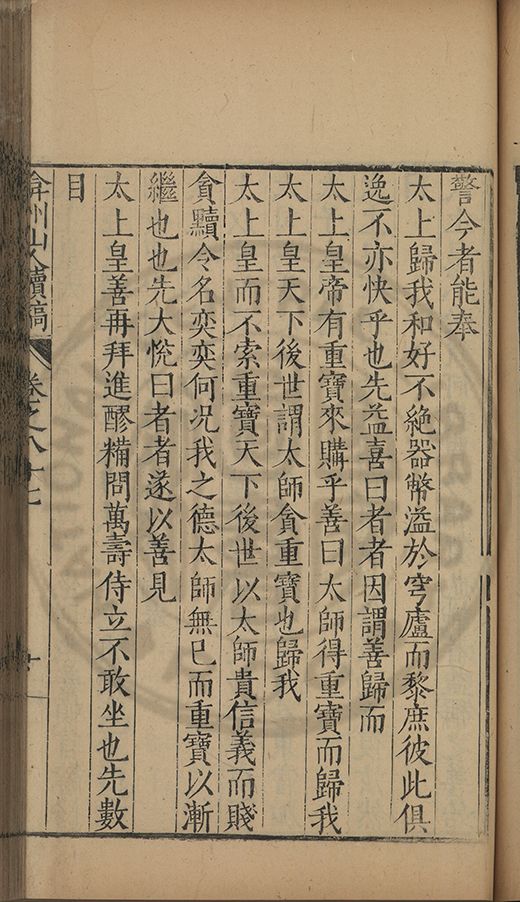 警今者能奉
太上歸我和好不絕器幣溢於穹廬而黎庶彼此俱
逸不亦快乎也先益喜曰者者因謂善歸而
太上皇帝有重寶來購乎善曰太師得重寶而歸我
太上皇天下後世謂太師貪重寶也歸我
太上皇而不索重寶天下後世以太師貴信義而賤
貪黷令名奕奕何况我之德太師無已而重寶以漸
繼也也先大悅曰者者遂以善見
太上皇善再拜進醪糒問萬壽侍立不敢坐也先數
目
弇州山人續稿
卷之八十七